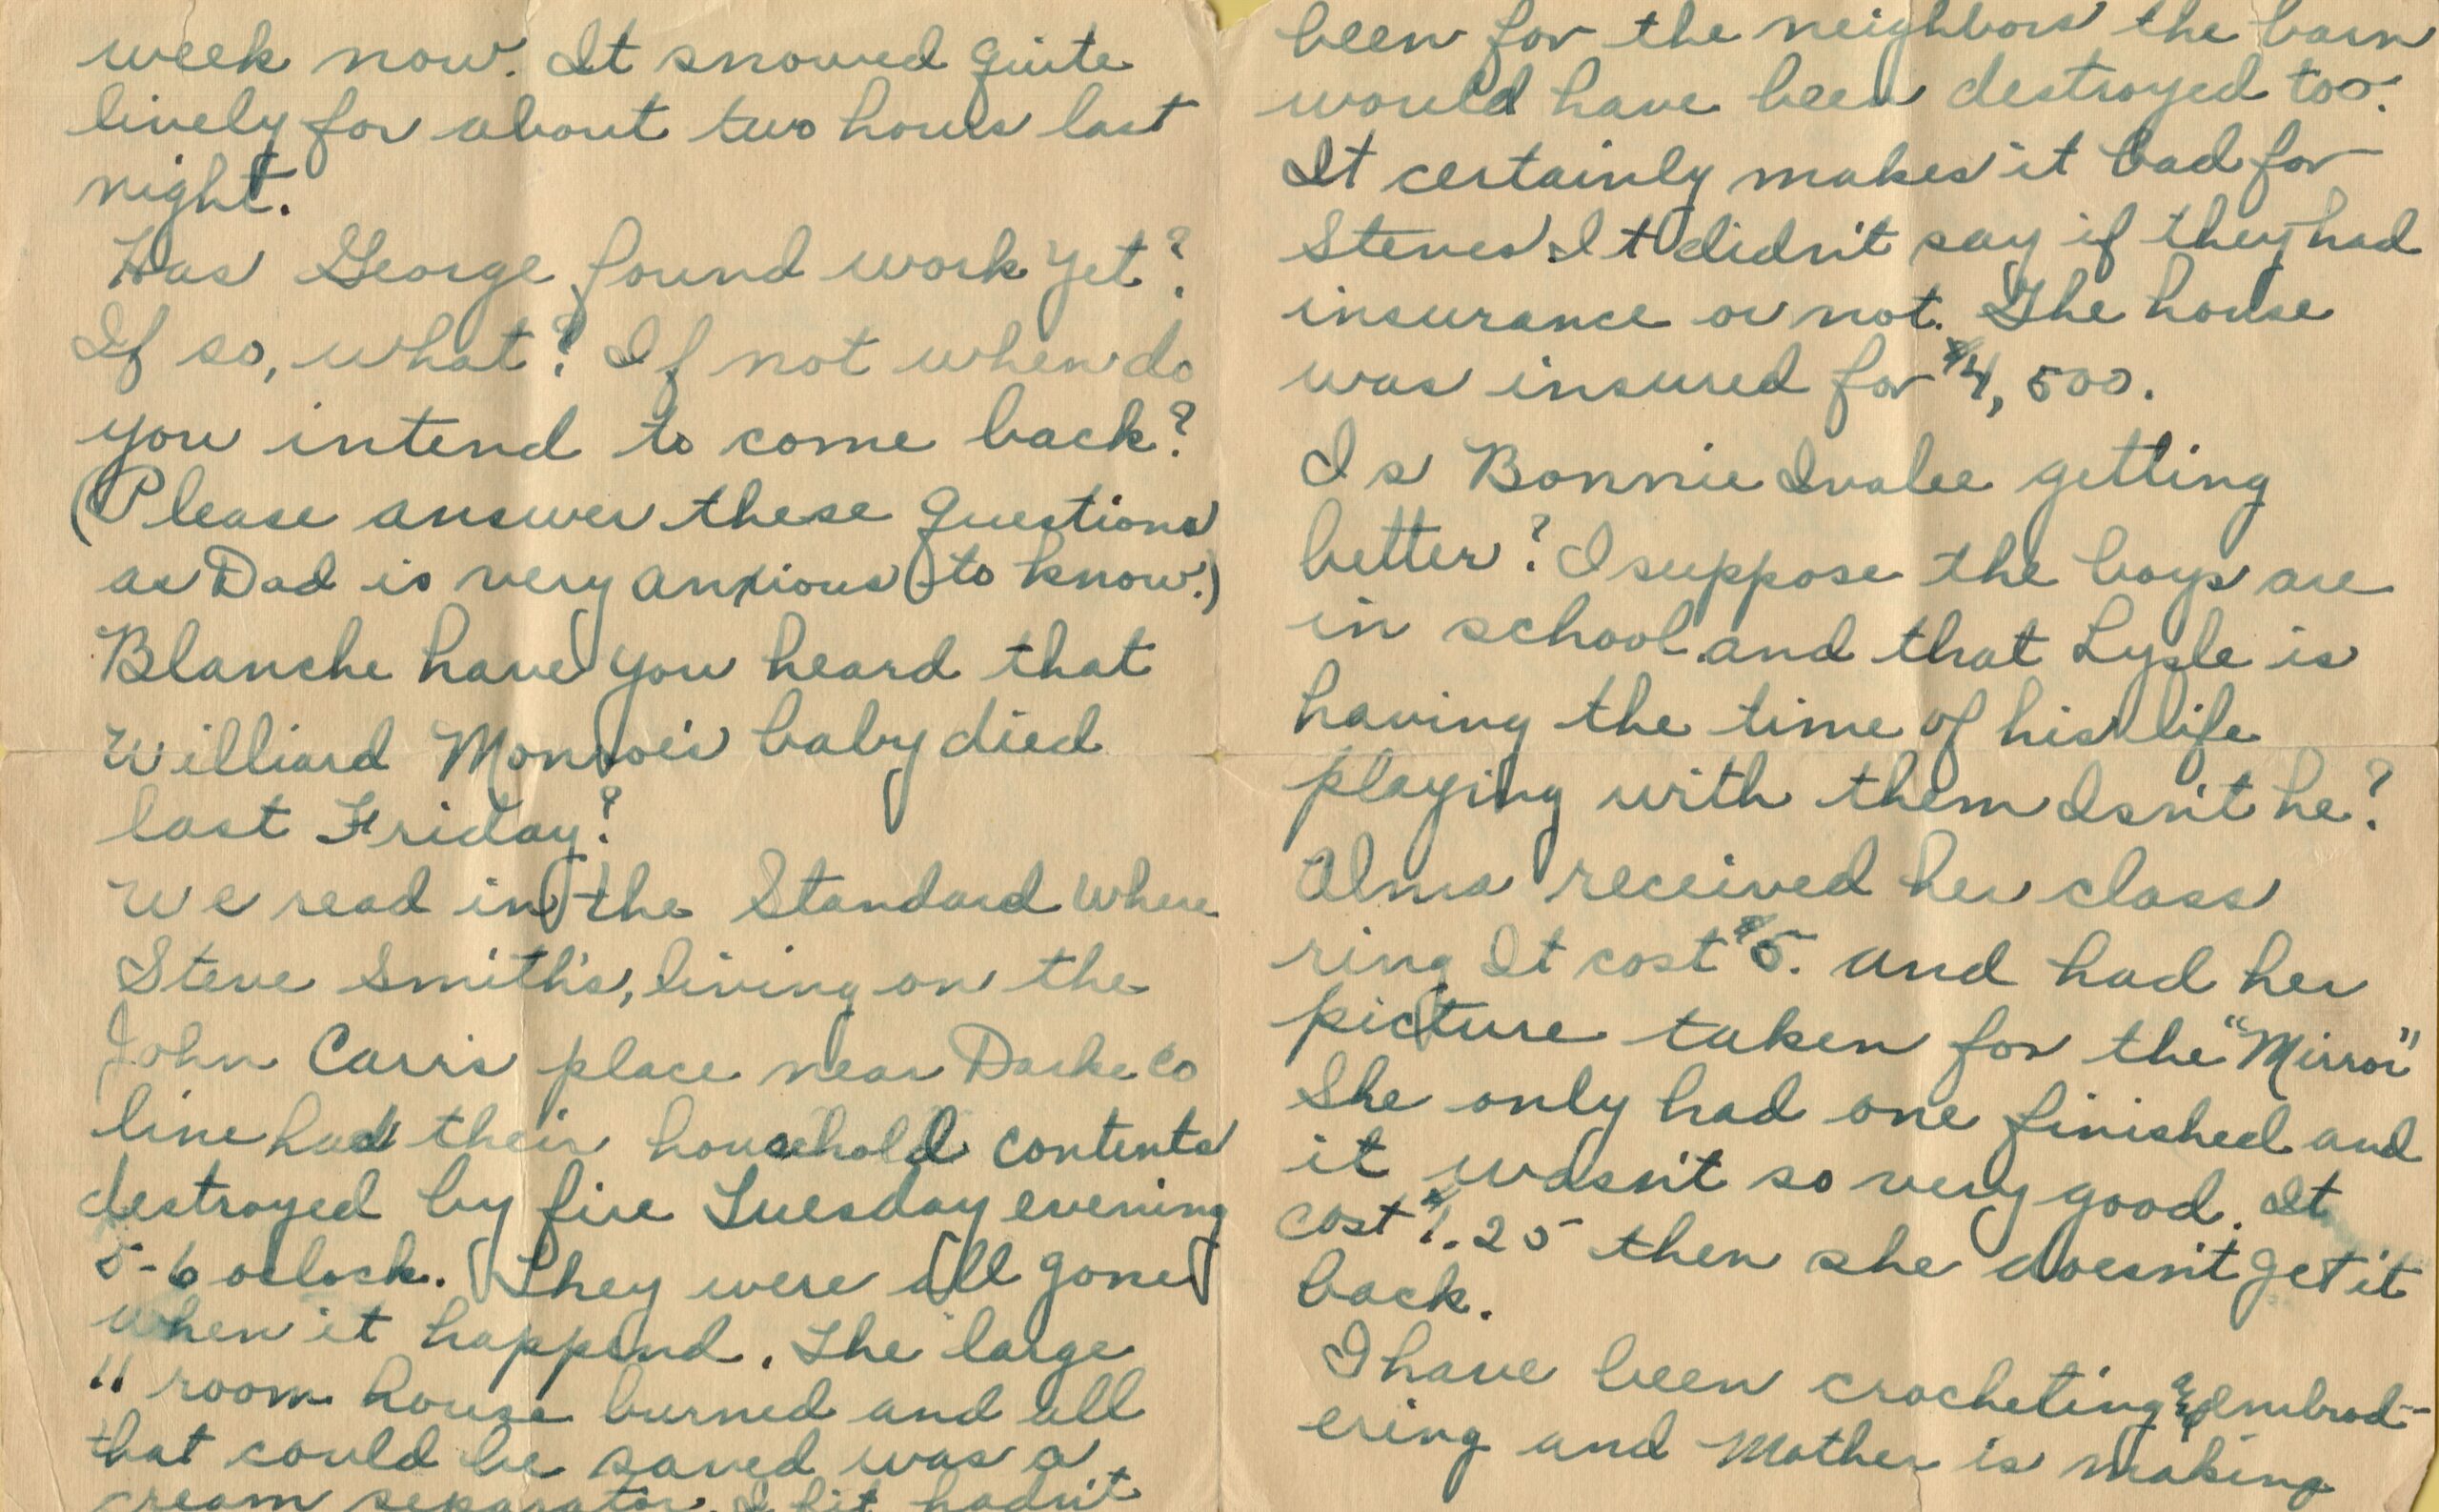 week now. It snowed quite
lively for about two hours last
night.
Has George found work yet?
If so, what? If not when do
you intend to come back?
(Please answer these questions
as Dad is very anxious to know.)
Blanche have you heard that
Williard Monroe's baby died
last Friday?
We read in the Standard where
Steve Smith's, living on the
John Carris place near Darke Co
line had their household contents
destroyed by fire Tuesday evening
5-6 oclock. They were all gone
when it happend. The large
11 room house burned and all
that could be saved was a
cream separator. If it hadn't
been for the neighbors the barn
would have been destroyed too.
It certainly makes it bad for
Steves. It didn't say if they had
insurance or not. The house
was insured for $4,500.
Is Bonnie Ivalee getting
better? I suppose the boys are
in school and that Lysle is
having the time of his life
playing with them Isn't he?
Alma received her class
ring It cost $5. and had her
picture taken for the "Mirror"
She only had one finished and
it wasn't so very good. It
cost $1.25 then she doesn't get it
back.
I have been crocheting & embrod-
ering and Mother is making